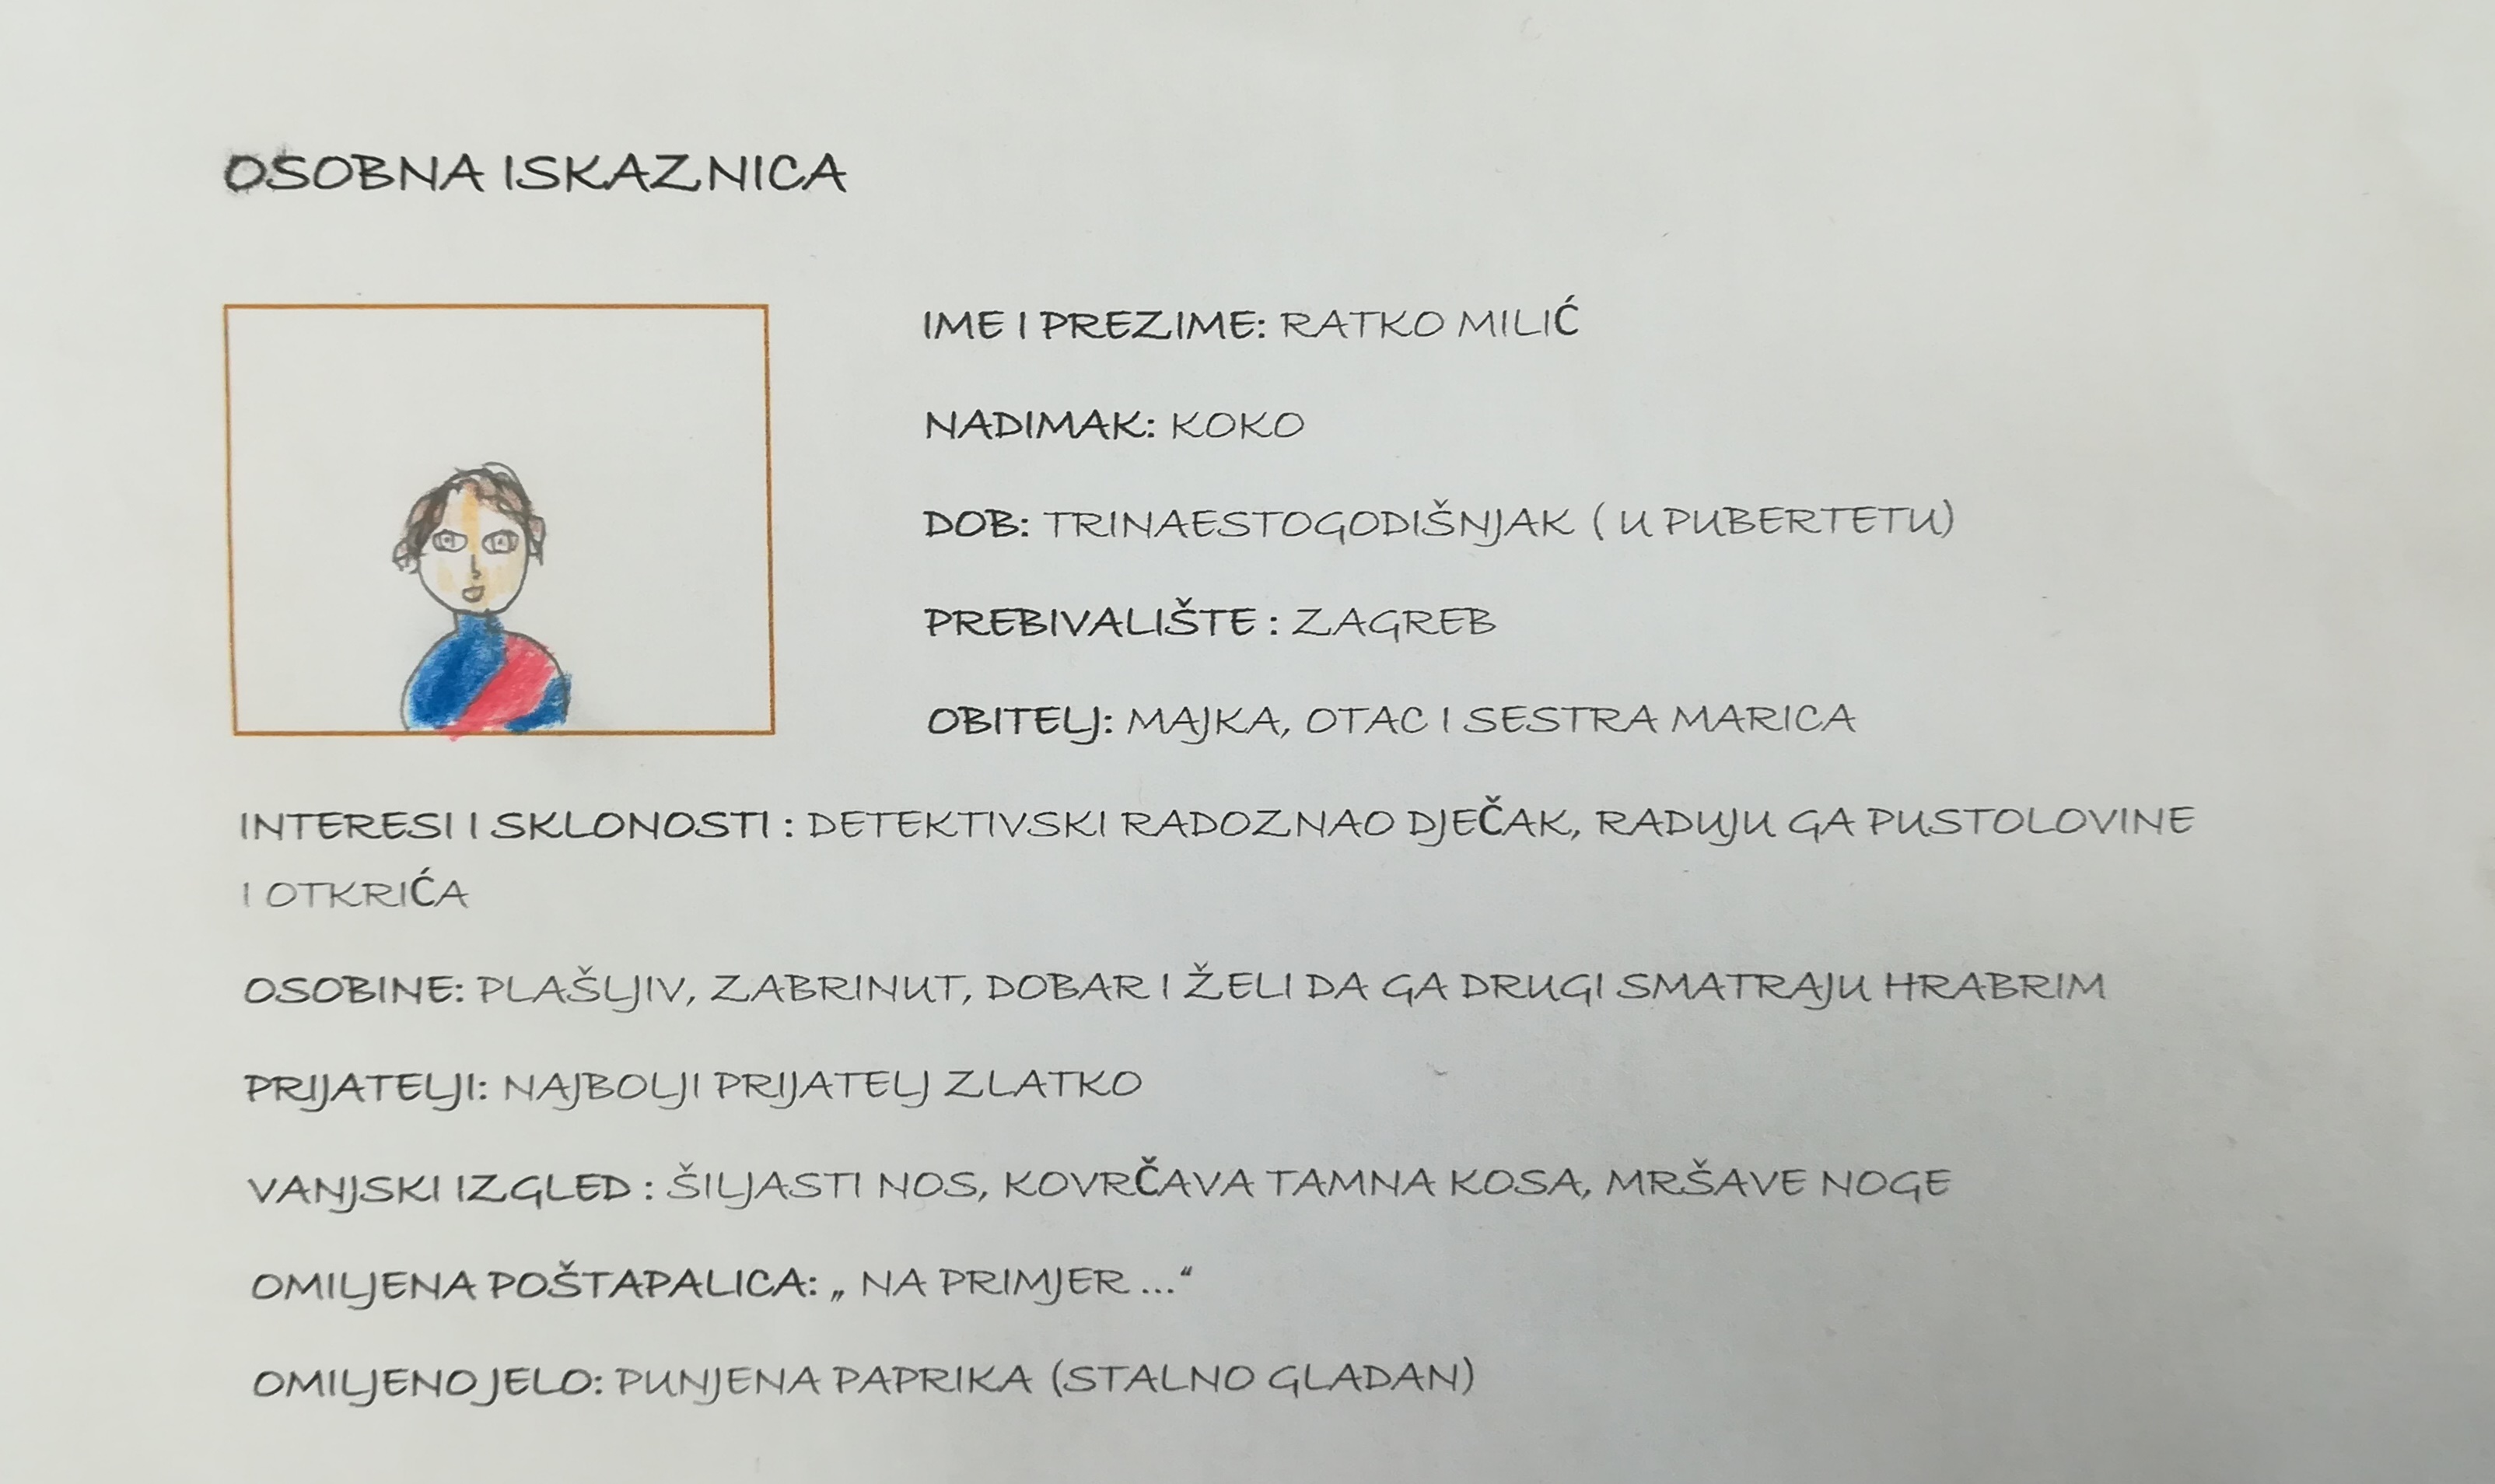 OSOBNA ISKAZNICA
IME I PREZIME: RATKO MILIĆ
NADIMAK: KOKO
DOB: TRINAESTOGODIŠNJAK ( U PUBERTETU)
PREBIVALIŠTE : ZAGREB
OBITELJ: MAJKA, OTAC I SESTRA MARICA
INTERESI I SKLONOSTI : DETEKTIVSKI RADOZNAO DJEČAK, RADUJU GA PUSTOLOVINE
I OTKRIĆA
OSOBINE: PLAŠLJIV, ZABRINUT, DOBAR I ŽELI DA GA DRUGI SMATRAJU HRABRIM
PRIJATELJI: NAJBOLJI PRIJATELJ ZLATKO
VANJSKI IZGLED : ŠILJASTI NOS, KOVRČAVA TAMNA KOSA, MRŠAVE NOGE
OMILJENA POŠTAPALICA: „ NA PRIMJER ...“
OMILJENO JELO: PUNJENA PAPRIKA (STALNO GLADAN)